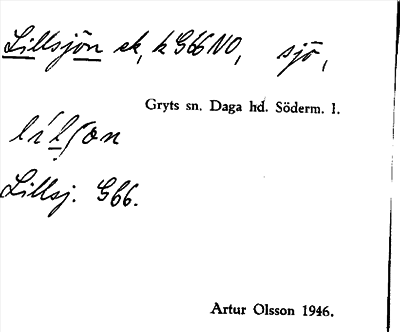 Lillsjön ek, k G66 NO, sjö,
Gryts sn. Daga hd. Söderm. l.
Lillsj. G66.
Artur Olsson 1946.